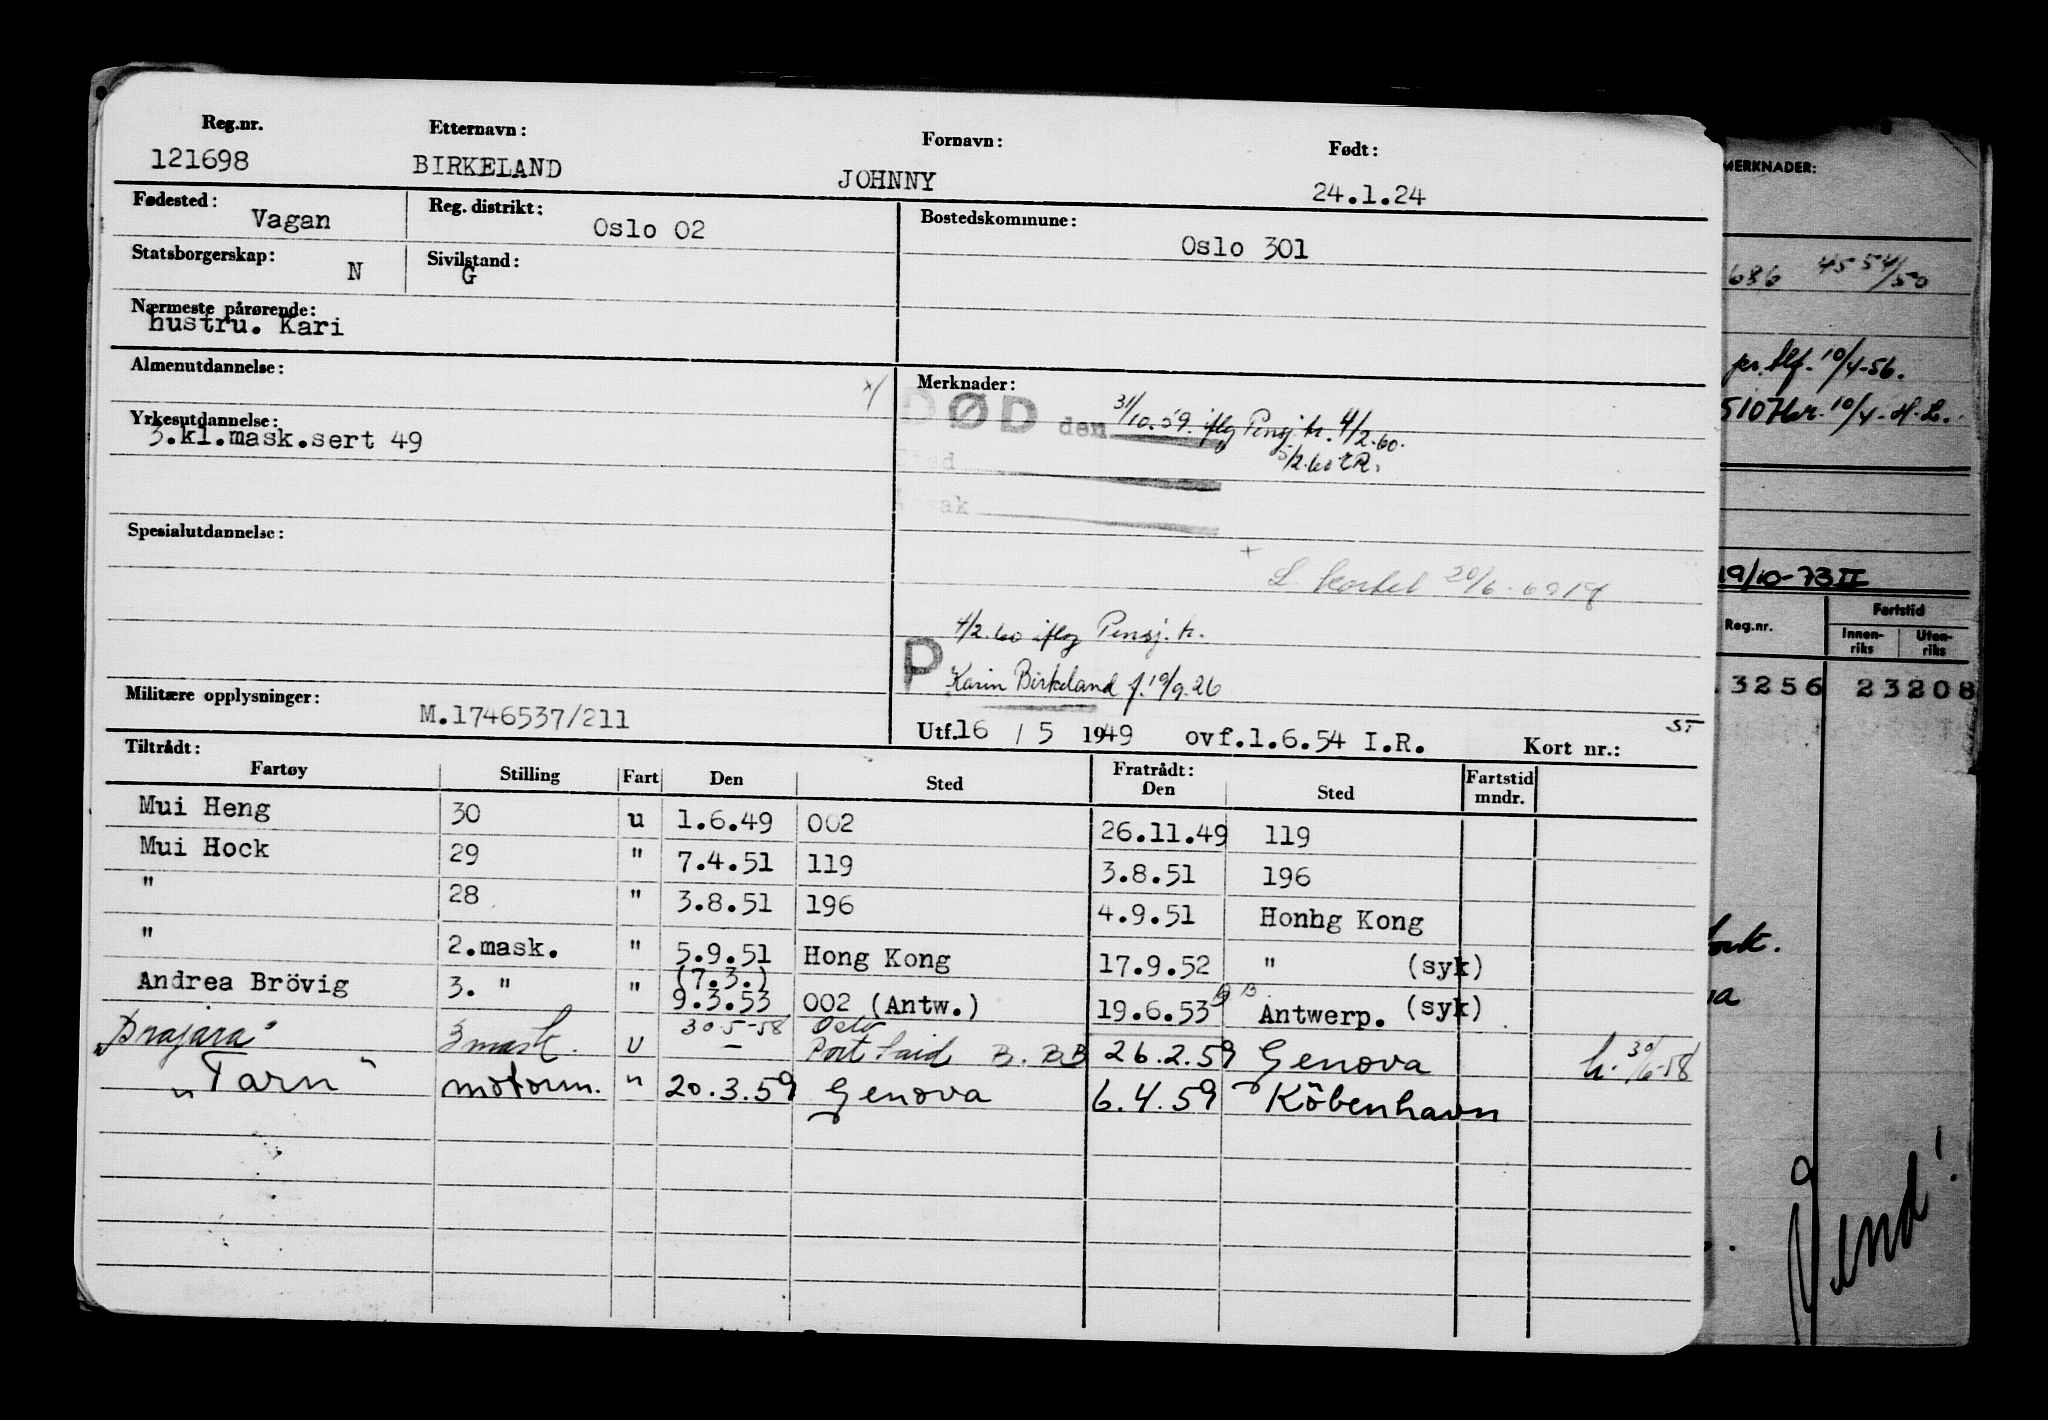 Reg.nr. Etternavn: Fornavn: Født:
121698 BIRKELAND JOHNNY 24.1.24
Fødested: Vagan Reg. distrikt: Oslo 02 Bostedskommune: Oslo 301
Statsborgerskap: N Sivilstand: G
Nærmeste pårørende:
hustru. Kari
Almenutdannelse: Merknader:
DØD den 31/10.59. iflg Pensj.tr. 4/2.60.
5/2.60 ER.
Yrkesutdannelse:
3.kl.mask.sert 49
Sted
Spesialutdannelse:
20/6-69
4/2.60 iflg Pensj.tr.
P Karin Birkeland f. 19/9.26
Militære opplysninger: M.1746537/211
ST
Utf.16 / 5 1949 ovf.1.6.54 I.R. Kort nr.:
Tiltrådt: Fratrådt:
Fartøy Stilling Fart Den Sted Den Sted Fartstid mndr.
Mui Heng 30 u 1.6.49 002 26.11.49 119
Mui Hock 29 " 7.4.51 119 3.8.51 196
" 28 " 3.8.51 196 4.9.51 Honhg Kong
" 2.mask. " 5.9.51 Hong Kong 17.9.52 " (syk)
Andrea Brövig 3. " " (7.3.) 9.3.53 002 (Antw.) 19.6.53 Antwerp. (syk)
"Brajara" 3 mask. u 30-5-58 Oslo
– Port Said B. BB 26.2.59 Genova h. 30/6-58
"Tarn" motorm. " 20.3.59 Genova 6.4.59 Köbenhavn
MERKNADER:
686 45 54/50
10/4-56.
5107 kr. 10/4- H.L.
19/10-73 II
Reg.nr. Fartstid
Innen-riks Uten-riks
3256 23208
Vend!